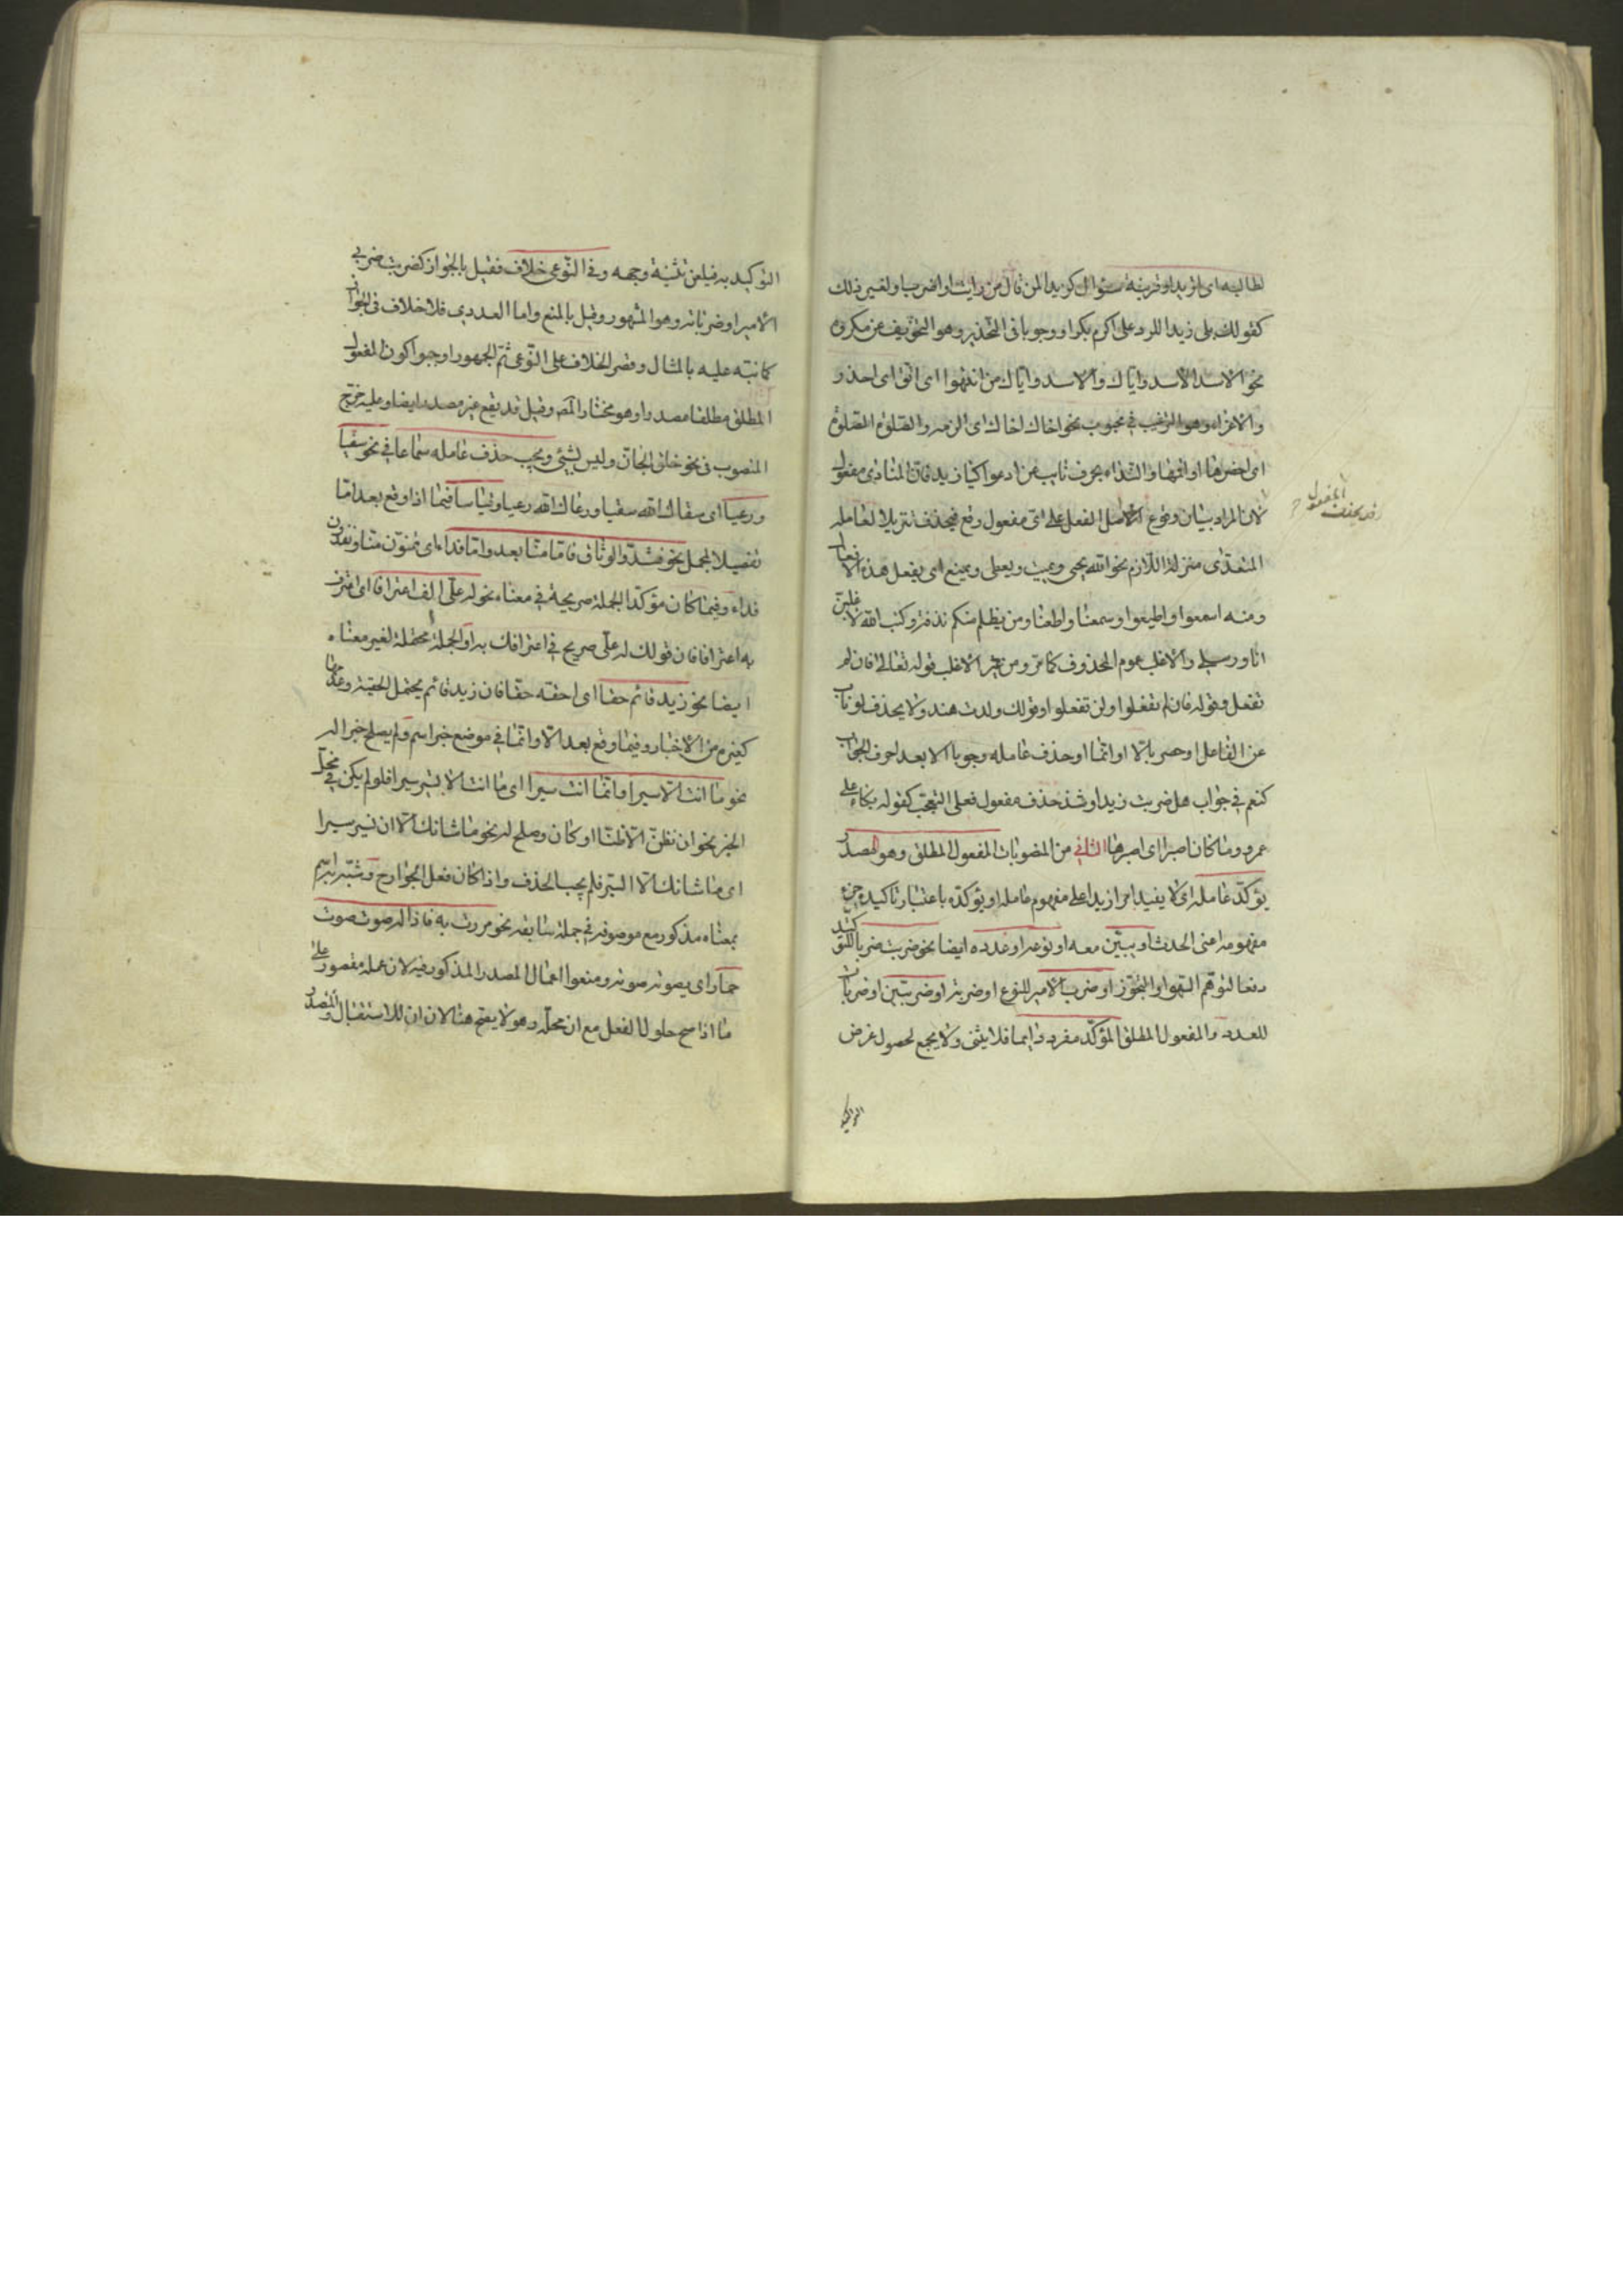 لطالبه اى اتريد او قرينة سؤال كزيدا لمن قال من رايت او اضرب او لغير ذلك
كقولك بلى زيدا للرد على اكرم بكرا و وجوبا فى التحذير وهو التخويف عن مكروه
نحو الاسد الاسد واياك والاسد واياك من انتهوا اى اتق اى احذر
والاغراء وهو الترغيب فى محبوب نحو اخاك اخاك اى الزمه والصلوة الصلوة
اى احضرها او اقمها والنداء بحرف نايب عن ادعوا كيا زيد فان المنادى مفعول
لان المراد بيان وقوع اصل الفعل على اى مفعول وقع فيحذف تنزيلا لعامله
المتعدى منزلة اللازم نحو الله يحيى ويميت ويعطى ويمنع اى يفعل هذه الافعال
ومنه اسمعوا واطيعوا وسمعنا واطعنا ومن يظلم منكم نذقه وكتب الله لاغلبن
انا ورسلى والاغلب عموم المحذوف كما مر ومن غير الاغلب قوله تعالى فان لم
تفعل وقوله فان لم تفعلوا ولن تفعلوا وقولك ولدت هند ولا يحذف لو ناب
عن الفاعل او حصر بالا او انما او حذف عامله وجوبا الا بعد احرف الجواب
كنعم فى جواب هل ضربت زيدا وشذ حذف مفعول فعلى التعجب كقوله بكاء على
عمرو وما كان اصبرا اى اصبرها الثانى من المنصوبات المفعول المطلق وهو المصدر
يؤكد عامله اى لا يفيد امرا زيدا على مفهوم عامله او يؤكده باعتبار تاكيده جزء
مفهومه اعنى الحدث او يبين معه او نوعه او عدده ايضا نحو ضربت ضربا للتوكيد
دفعا لتوهم السهو او التجوز او ضرب الامير للنوع او ضربة او ضربتين او ضربات
للعدد والمفعول المطلق المؤكد مفرد دايما فلا يثنى ولا يجمع لحصول غرض
التوكيد
وقد يحذف المفعول
التوكيد به فيلغى تثنية وجمعه وفى النوعى خلاف فقيل بالجواز كضربت ضربى
الامير او ضرباته وهو المشهور وقيل بالمنع واما العددى فلا خلاف فى الجواز
كما نبه عليه بالمثال وقصر الخلاف على النوعى ثم الجمهور اوجبوا كون المفعول
المطلق مطلقا مصدرا وهو مختار المصـ وقيل قد يقع غير مصدر ايضا وعليه خرج
المنصوب فى نحو خلق الخاق وليس بشىء ويجب حذف عامله سماعا فى نحو سقيا
ورعيا اى سقاك الله سقيا ورعاك الله رعيا وقياسا فيما اذا وقع بعد اما
تفصيلا لمجمل نحو فشدوا الوثاق فاما منا بعد واما فداء اى تمنون منا وتفدون
فداء وفيما كان مؤكدا لجملة صريحة فى معناه نحو له على الف اعترافا اى اعترف
به اعترافا فان قولك له على صريح فى اعترافك به او لجملة محتملة لغير معناه
ايضا نحو زيد قائم حقا اى احقه حقا فان زيد قائم يحتمل الحقية وعدمها
كغيره من الاخبار وفيما وقع بعد الا او انما فى موضع خبر اسم ولم يصلح خبرا له
نحو ما انت الا سيرا وانما انت سيرا اى ما انت الا تسير سيرا فلو لم يكن فى محل
الخبر نحو ان نظن الا ظنا او كان وصلح له نحو ما شانك الا ان تسير سيرا
اى ما شانك الا السير فلم يجب الحذف واذا كان فعل الجوارح وشبه به اسم
بمعناه مذكور مع موصوفه فى جملة سابقة نحو مررت به فاذا له صوت صوت
حمار اى يصوته صوته ومنعوا اعمال المصدر المذكور فيه لان عمله مقصور على
ما اذا صح حلول الفعل مع ان محله وهو لا يفتح هنا لان ان للاستقبال والمصدر